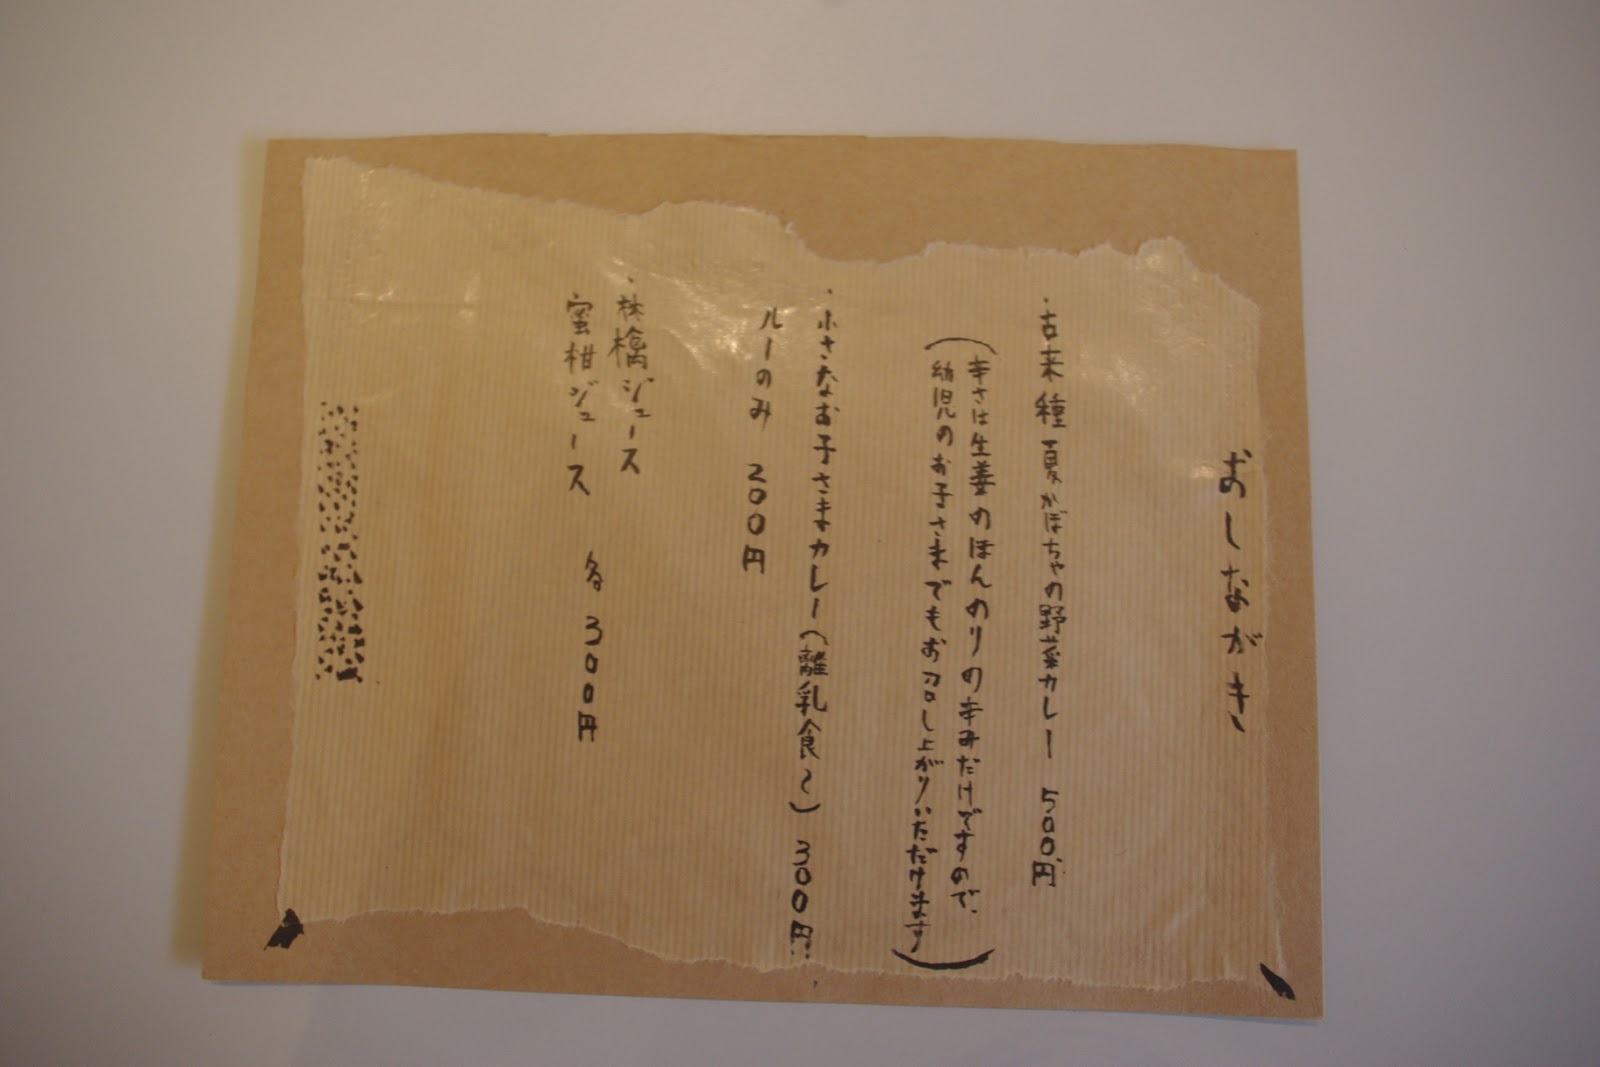 おしながき
・古来種夏かぼちゃの野菜カレー 500円
(辛さは生姜のほんのりの辛みだけですので、
幼児のお子さまでもお召し上がりいただけます)
・小さなお子さまカレー(離乳食〜) 300円
ルーのみ 200円
・林檎ジュース
・蜜柑ジュース 各300円